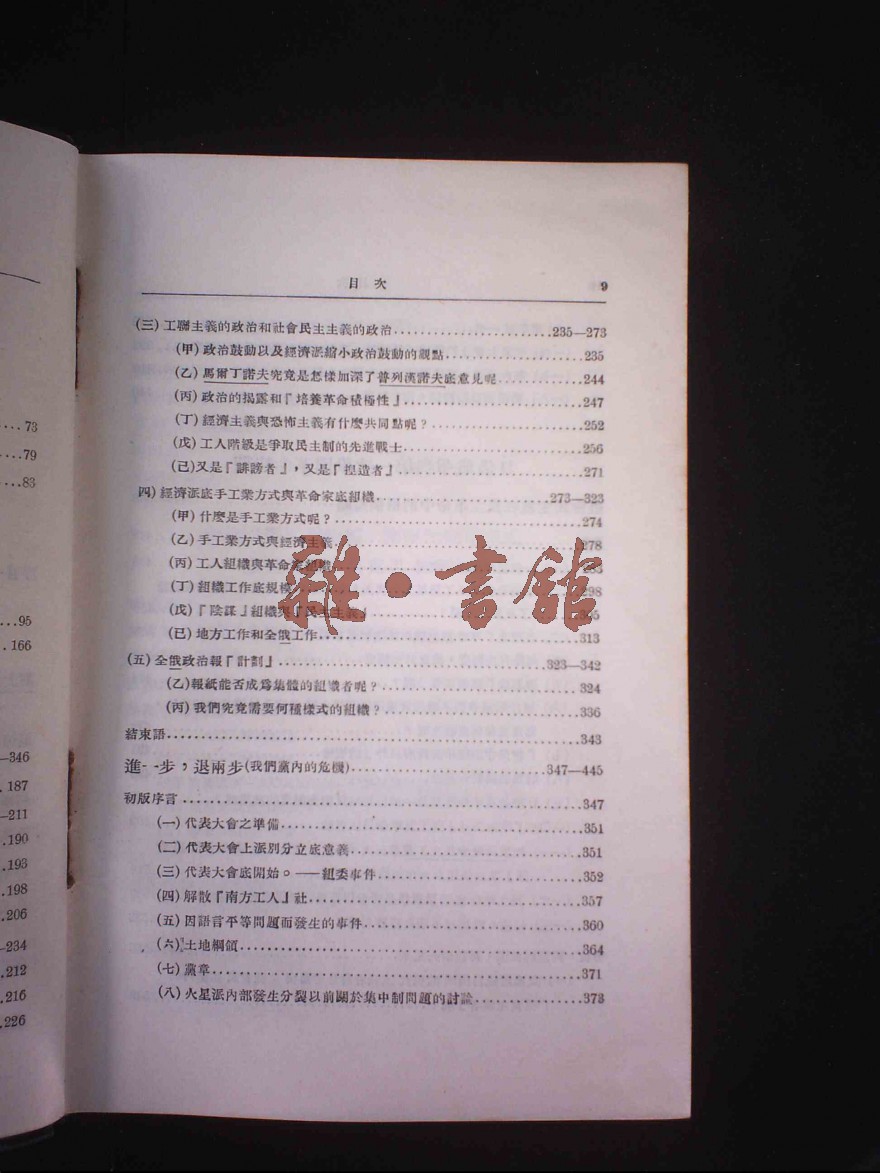 73
79
83
95
166
—346
187
—211
190
193
198
206
—234
212
216
226
目 次 9
(三) 工聯主義的政治和社會民主主義的政治 235—273
(甲) 政治鼓動以及經濟派縮小政治鼓動的觀點 235
(乙) 馬爾丁諾夫究竟是怎樣加深了普列漢諾夫底意見呢 244
(丙) 政治的揭露和『培養革命積極性』 247
(丁) 經濟主義與恐怖主義有什麼共同點呢? 252
(戊) 工人階級是爭取民主制的先進戰士 256
(己)又是『誹謗者』,又是『捏造者』 271
四) 經濟派底手工業方式與革命家底組織 273—323
(甲) 什麼是手工業方式呢? 274
(乙) 手工業方式與經濟主義 278
(丙) 工人組織與革命家組織
(丁) 組織工作底規模 298
(戊) 『陰謀』組織與『民主主義』 305
(已) 地方工作和全俄工作 313
(五) 全俄政治報『計劃』 323—342
(乙)報紙能否成爲集體的組織者呢? 324
(丙) 我們究竟需要何種樣式的組織? 336
結束語 343
進一步,退兩步(我們黨內的危機) 347—445
初版序言 347
(一) 代表大會之準備 351
(二) 代表大會上派別分立底意義 351
(三) 代表大會底開始。——組委事件 352
(四) 解散『南方工人』社 357
(五) 因語言平等問題而發生的事件 360
(六) 土地綱領 364
(七) 黨章 371
(八) 火星派內部發生分裂以前關於集中制問題的討論 373
雜·書館